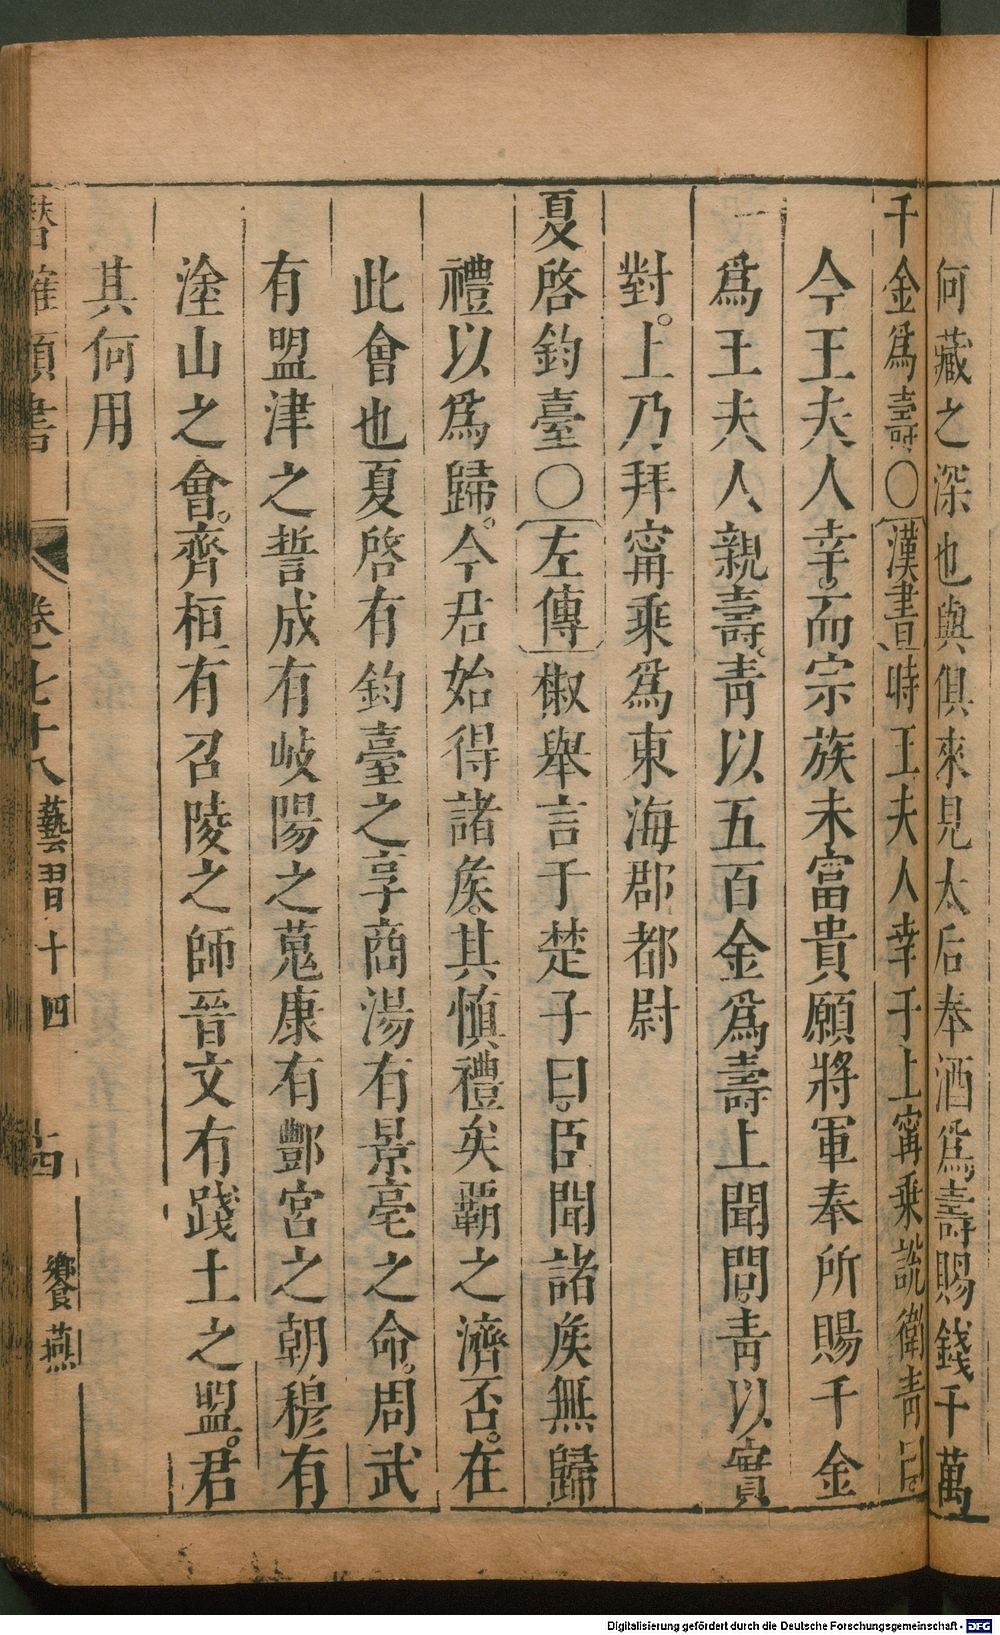 何藏之深也與俱來見太后奉酒爲壽賜錢千萬
千金爲壽○〔漢書〕時王夫人幸于上甯乘說衛青曰
今王夫人幸。而宗族未富貴願將軍奉所賜千金
爲王夫人親壽。青以五百金爲壽上聞問。青以實
對。上乃拜甯乘爲東海郡都尉
夏啓鈞臺○〔左傳〕椒舉言于楚子曰。臣聞諸矦無歸
禮以爲歸。今君始得諸矦。其慎禮矣覇之濟否。在
此會也夏啓有鈞臺之享商湯有景亳之命。周武
有盟津之誓成有岐陽之蒐康有酆宮之朝穆有
塗山之會。齊桓有召陵之師晉文有踐土之盟。君
其何用
潛確類書 卷之七十八 藝習十四 十四 饗燕
Digitalisierung gefördert durch die Deutsche Forschungsgemeinschaft - DFG